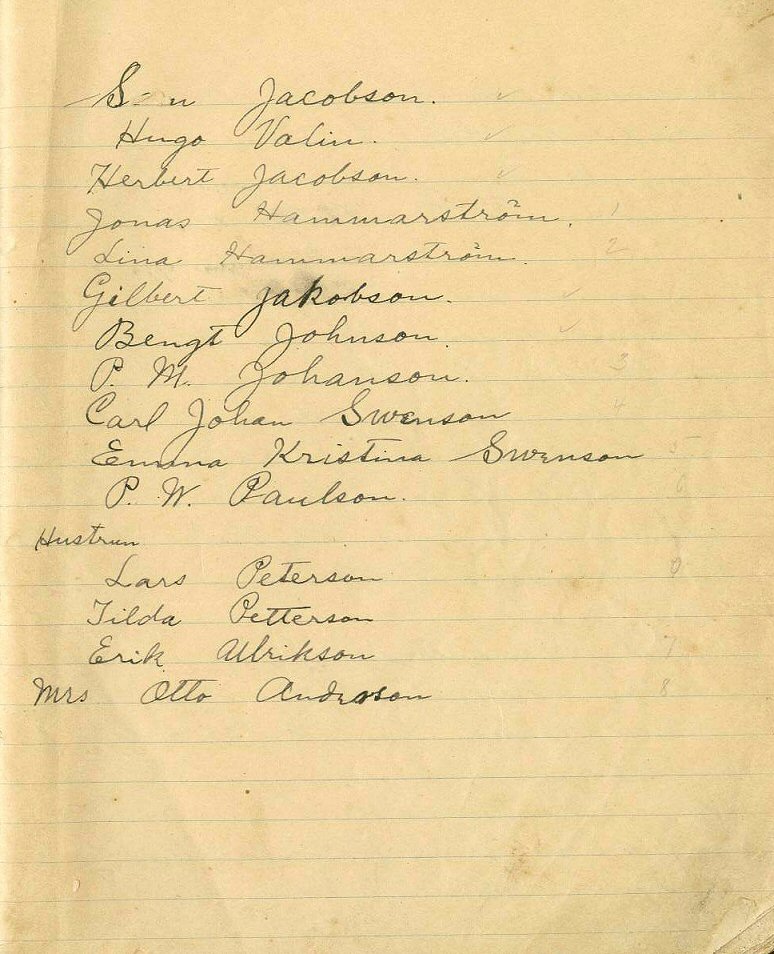 Jacobson. ✓
Hugo Valin. ✓
Herbert Jacobson. ✓
Jonas Hammarström. 1
Lina Hammarström. 2
Gilbert Jakobson. ✓
Bengt Johnson. ✓
P. M. Johanson. 3
Carl Johan Swenson 4
Emma Kristina Swenson 5
P. W. Paulson. 6
Hustrun
Lars Peterson 0
Tilda Petterson
Erik Ullrikson 7
Mrs Otto Anderson 8